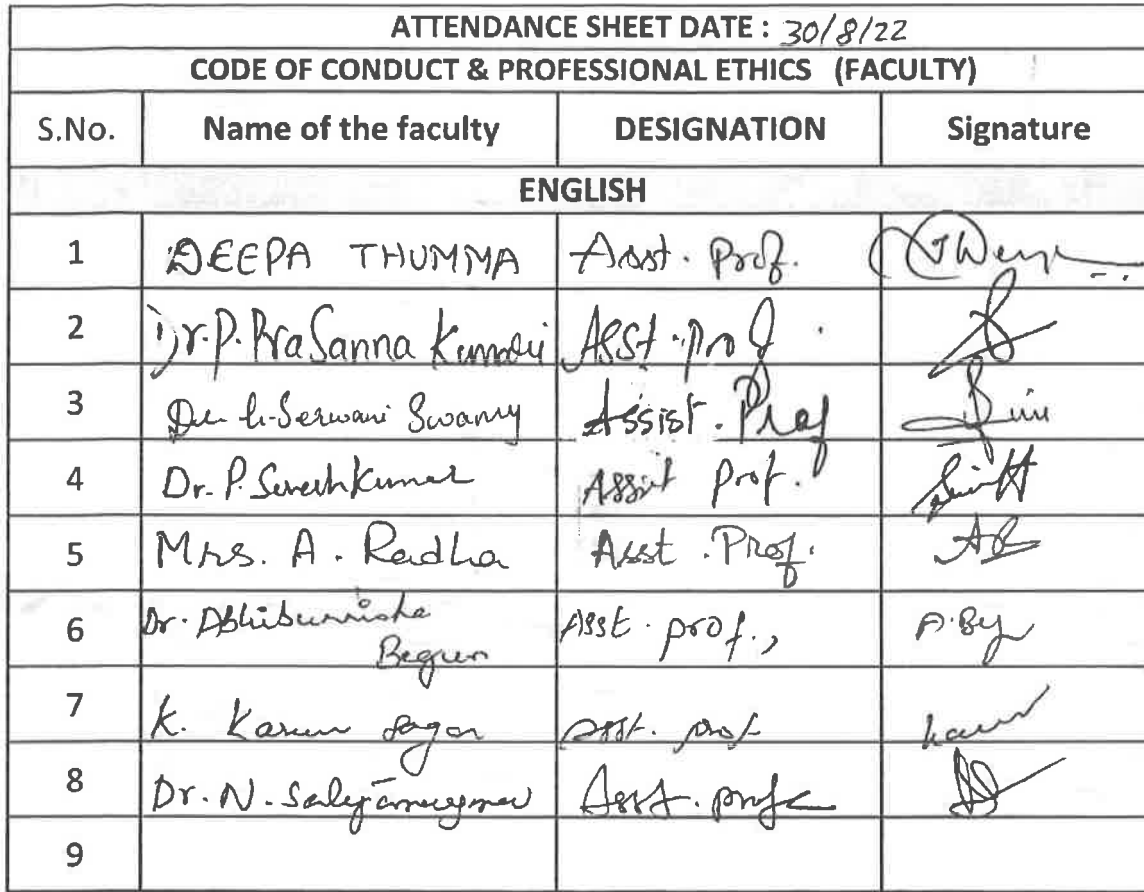 ATTENDANCE SHEET DATE : 30/8/22
CODE OF CONDUCT & PROFESSIONAL ETHICS (FACULTY)
S.No. Name of the faculty DESIGNATION Signature
ENGLISH
1 DEEPA THUMMA Asst. Prof.
2 Dr. P. PraSanna Kumari Asst. prof.
3 Swamy Assist. Prof
4 Dr. P. Suresh Kumar Assist Prof.
5 Mrs. A. Radha Asst. Prof. AR
6 Dr. Asst. prof.,
Begum
7 K. Karun Sagar Asst. prof
8 Dr. N. Asst. prof
9